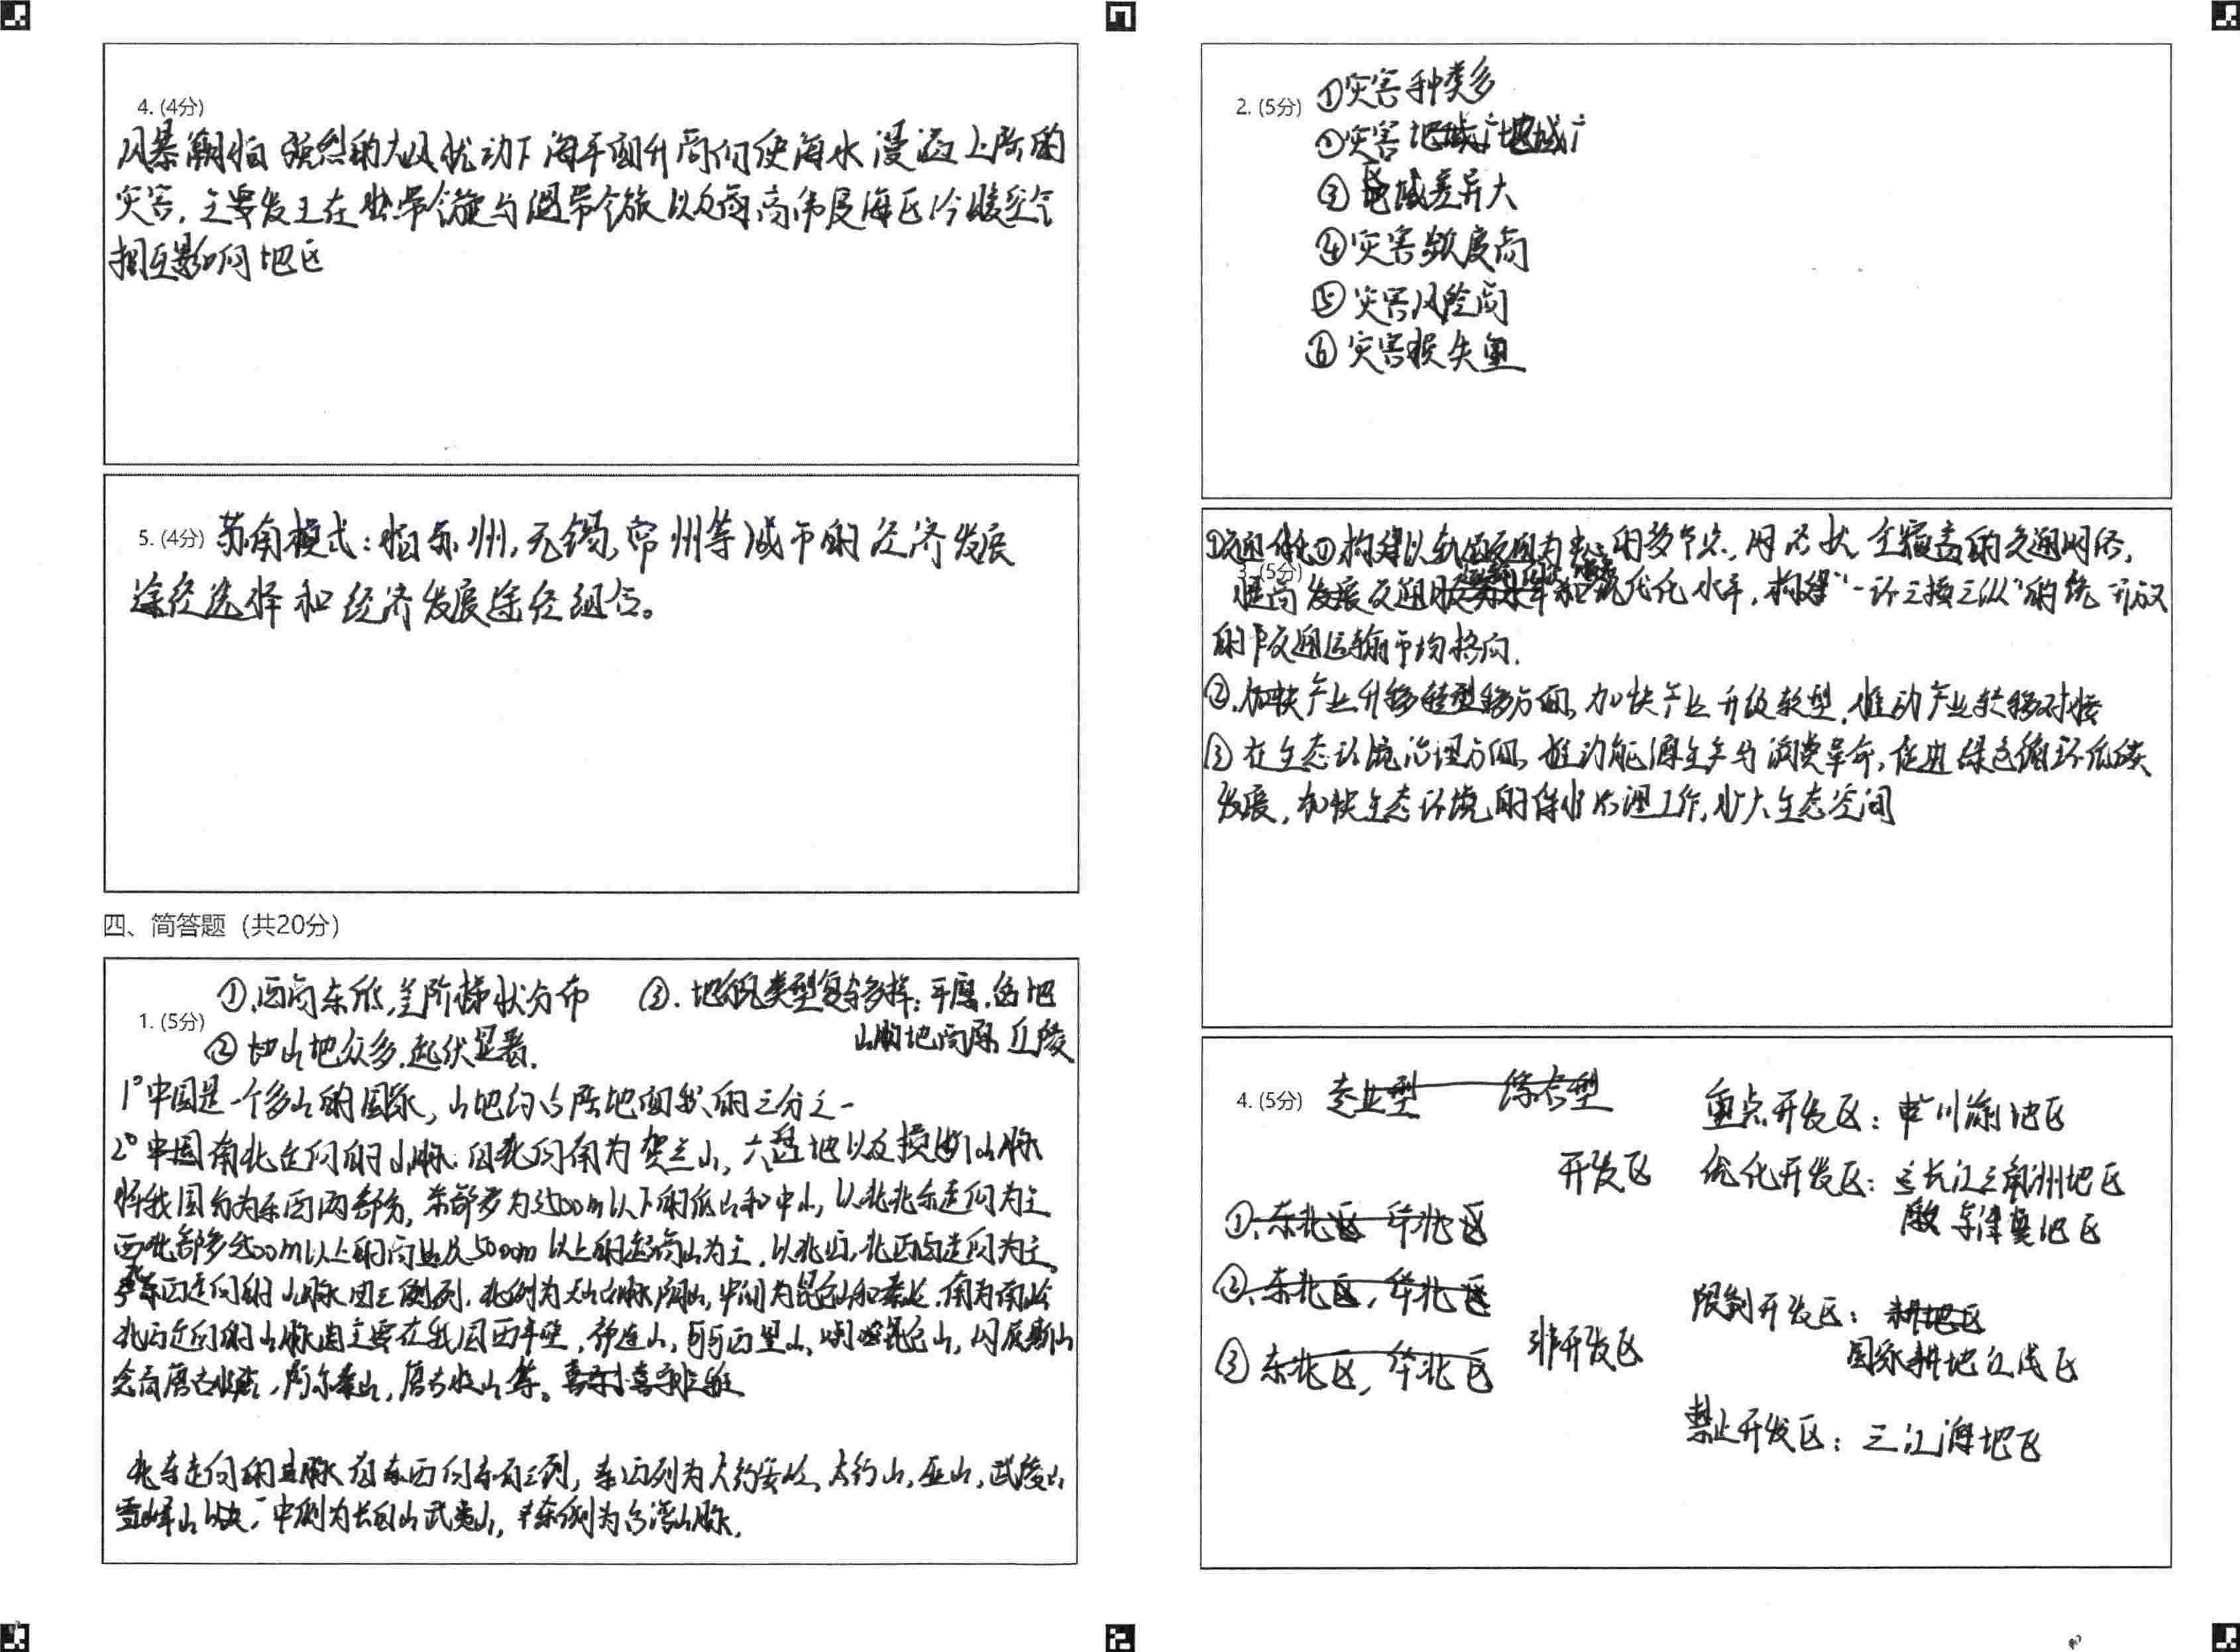 4. (4分)
风暴潮指强烈的大风扰动下海平面升高向使海水漫溢上岸的
灾害,主要发生在热带气旋与温带气旋以及两高伟度海区冷暖空气
相互影响地区
5. (4分) 苏南模式:指苏州,无锡,常州等城市的经济发展
途径选择和经济发展途径组合。
四、简答题 (共20分)
1. (5分)
①.西高东低,呈阶梯状分布
②山地众多,起伏显著.
③. 地貌类型复杂多样:平原.盆地
山地高原 丘陵
1°中国是一个多山的国家,山地约占陆地面积的三分之一
2°中国南北走向的山脉.由北向南为贺兰山,六盘以及横断山脉
将我国分为东西两部分,东部多为3500m以下的低山和中山,以北北东走向为主
以上的高山及5000m以上的超高山为主,以北西,北西西走向为主。
东西走向的山脉由三列,北列为天山阴山,中间为昆仑山和秦岭.南为南岭
北西走向的山脉主要在我国西半壁,祁连山,
阿尔泰山,唐古拉山等。
北东走向的山脉自东西向东有三列,西列为大兴安岭,太行山,巫山,武陵山
雪峰山 中列为长白山武夷山,东列为台湾山脉.
2. (5分) ①灾害种类多
②灾害地域广
③区域差异大
④灾害频度高
⑤灾害风险高
⑥灾害损失重
3. (5分)
①交通 构建以轨道交通为的多节点,网格状全覆盖的交通网络,
提高发展交通现代化水平,构建“一环三横三纵”的统开放
的交通运输市均格局.
②.方面,加快产业升级转型,推动产业转移对接
③在生态环境治理方面,推动能源生产与消费革命,促进绿色循环低碳
发展,加快生态环境的保护治理工作,扩大生态空间
4. (5分) 专业型 综合型
①.东北区 华北区
②.东北区,华北区
③东北区,华北区
开发区
重点开发区:川渝地区
优化开发区:长江三角洲地区
京津冀地区
非开发区
限制开发区:耕地区
国家耕地红线区
禁止开发区:三江源地区